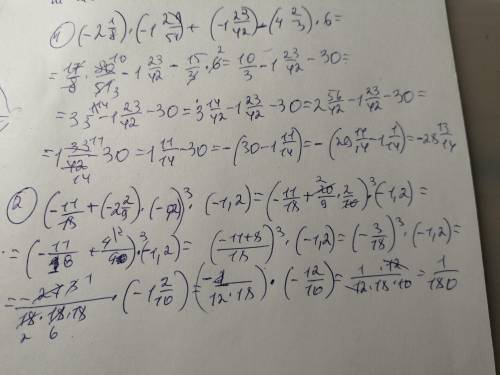 ① (-2 1/8) · (-1 29/51 + (-1 23/42) - (4 2/3) · 6 =
= 17/8 · 80/51 - 1 23/42 - 15/3 · 6 = 10/3 - 1 23/42 - 30 =
- 1 23/42 - 30 = 3 14/42 - 1 23/42 - 30 = 2 56/42 - 1 23/42 - 30 =
= 1 33/42 - 30 = 1 11/14 - 30 = -(30 - 1 11/14) = -(29 11/14 - 1 1/14) = -28 13/14
② (-11/18 + (-2 2/9) · (- 2)³ · (-1,2) = (-11/18 + 20/9 · 2/10)³ · (-1,2) =
= (-11/18 + 4/ )³ (-1,2) = (-11+8/18)³ · (-1,2) = (-3/18)³ · (-1,2) =
= /18·18·18 · (-1 2/10) = (-1/12·18) · (-12/10) = 1·12/12·18·10 = 1/180